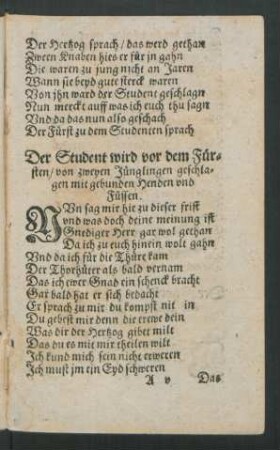 Der Hertzog sprach / das werd gethan
Zween Knaben hies er für jn gahn
Die waren zu jung nicht an Jaren
Wann sie beyd gute sterck waren
Von jhn ward der Student geschlagn
Nun merckt auff was ich euch thu sagn
Vnd da das nun also geschach
Der Fürst zu dem Studenten sprach
Der Student wird vor dem Für-
sten / von zweyen Jünglingen geschla-
gen mit gebunden Henden vnd
Füssen.
NVn sag mir hie zu dieser frist
vnd was doch deine meinung ist
Gnediger Herr gar wol gethan
Da ich zu euch hinein wolt gahn
Vnd da ich für die Thüre kam
Der Thorhüter als bald vernam
Das ich ewer Gnad ein schenck bracht
Gar bald hat er sich bedacht
Er sprach zu mir du kompst nit in
Du gebest mir denn die trewe dein
Was dir der Hertzog gibet milt
Das du es mit mir theilen wilt
Ich kund mich sein nicht erweren
Ich must jm ein Eyd schweren
A v Das